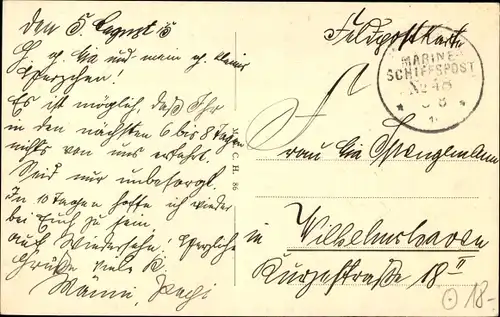 den 5. August 15
und mein gl. kleines
Herzchen!
Es ist möglich daß Ihr
in den nächsten 6 bis 8 Tagen
nichts von uns erfahrt.
Seid nur unbesorgt.
In 10 Tagen hoffe ich wieder
bei Euch zu sein.
Auf Wiedersehn! Herzliche
Grüße viele K.
Männi,
C. H. 86
Feldpostkarte
MARINE-
SCHIFFSPOST
No 48
Frau
in Wilhelmshaven
Kurzestraße 18 II
18-